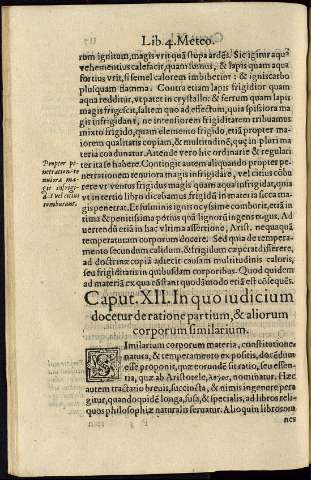 Lib. 4. Meteo.
rum ignitum, magis vrit quā stupa ardēs. Sic igitur aqua
vehementius calefacit, quam fumus, & lapis quam aqua
fortius vrit, si semel calorem imbiberint: & ignis carbo
plusquam flamma. Contra etiam lapis frigidior quam
aqua redditur, vt patet in crystallo: & ferrum quam lapis
magis frigescit, saltem quo ad effectum, quia spissiora ma
gis infrigidant, ne intensiorem frigiditatem tribuamus
mixto frigido, quam elemento frigido, etiā propter ma-
iorem qualitatis copiam, & multitudinē, quę in pluri ma
teria coadunatur. Attende vero hic ordinarie & regulari
ter ita se habere. Contingit autem aliquando propter pe-
netrationem tenuiora magis infrigidari, vel citius cōbu
rere vt ventus frigidus magis quam aqua infrigidat, quia
vt in tertio libro dicebamus frigidā in materia sicca ma-
gis penetrat. Et fulminis ignis ocyssime comburit, etiā in
vna & penitissima potius quā lignorū ingens rogus. Ad
uertendū etiā in hac vltima assertione, Arist. nequaquā
temperatum corporum docere. Sed quia de tempera-
mento secundum calidum, & frigidum cœperat disserere,
ad doctrinæ copiā adiecit causam multitudinis caloris,
seu frigiditatis in quibusdam corporibus. Quod quidem
ad materiā ex qua cōstant quodammodo etiā est cōsequēs.
Propter pe
netration. te
nuiora ma-
gis infrigi-
dā. & vel citius
comburant.
Caput. XII. In quo iudicium
docetur de ratione partium, & aliorum
corporum similarium.
Similarium corporum materia, constitutione
natura, & temperamento expositis, docēdum
esse proponit, quæ eorundē sit ratio, seu essen-
tia, quæ ab Aristotele, λογος, nominatur. Hæc
autem tractatio breuis, succincta, & nimis ingenere perg
gitur, quandoquidē longa, fusa, & specialis, ad libros reli-
quos philosophiæ naturalis seruatur. Alioquin librosom
nes